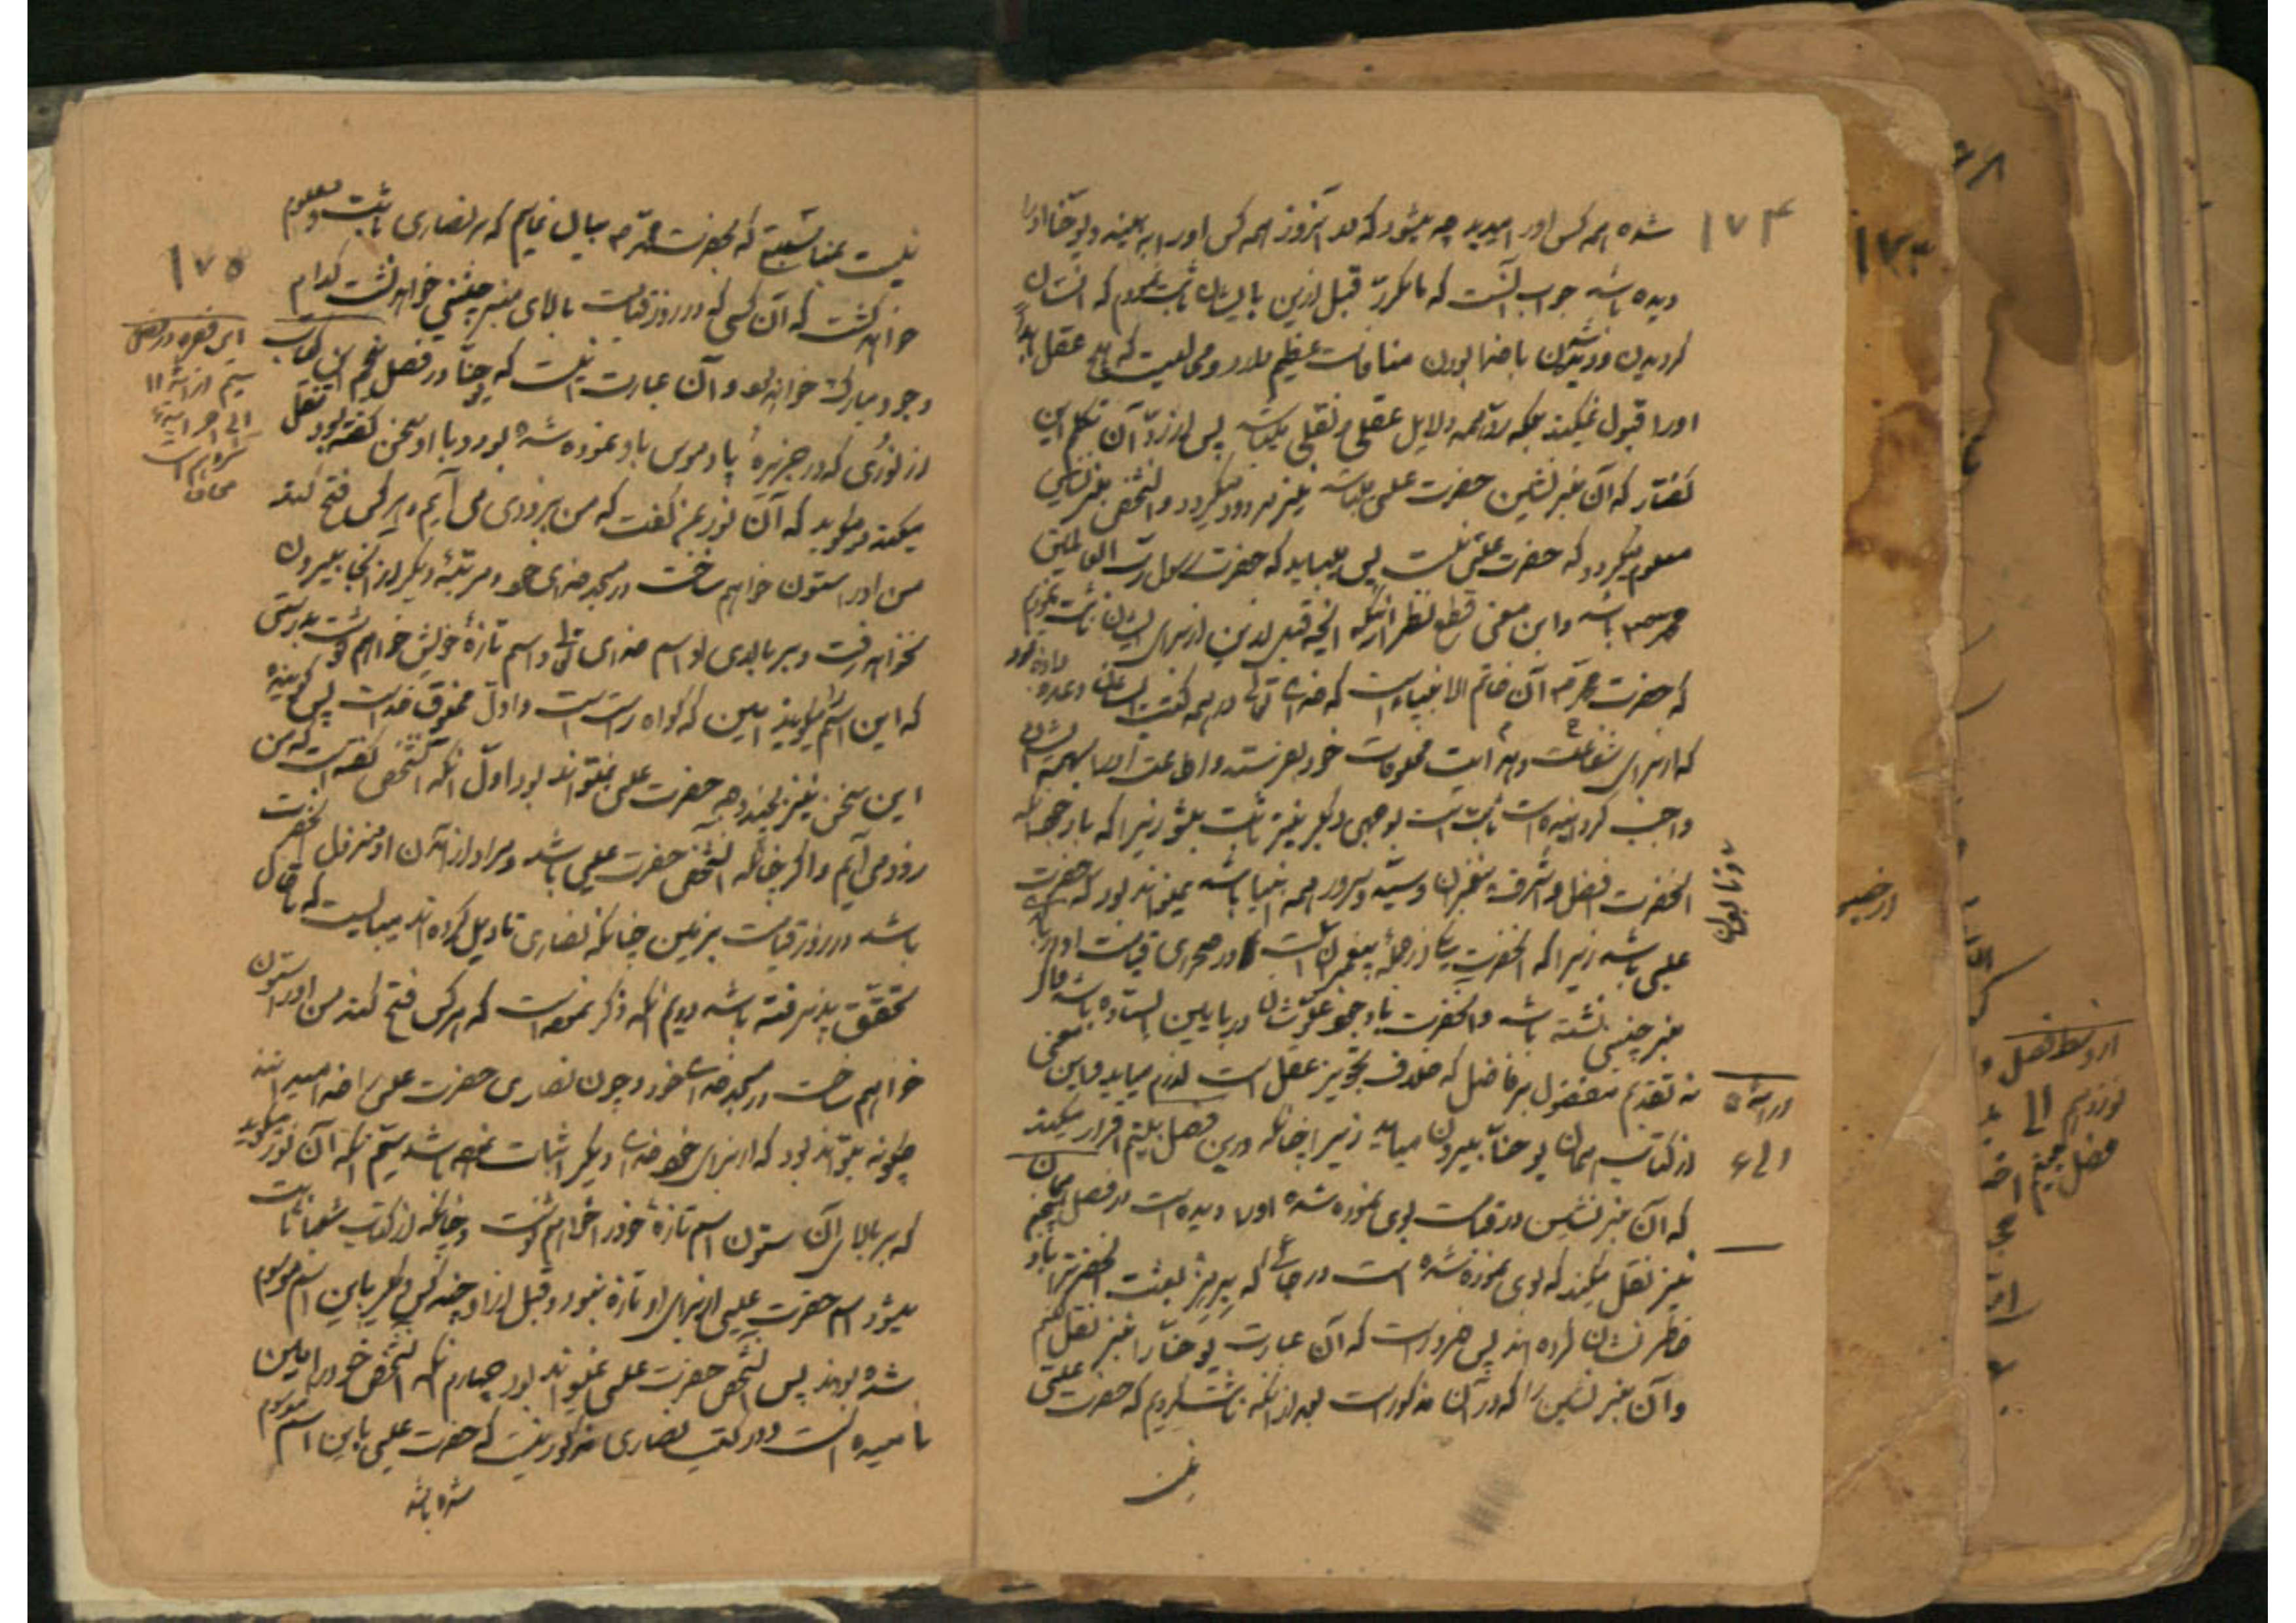 ۱۷۴
شده همه کس او را میدید چه میشود که در آنروز همه کس او را به بیند و یوحنا او را
دیده باشد جواب آنست که ما مکرر قبل ازین با ایشان ثابت نمودیم که انسان
گردیدن و زن با خدا بودن منافات عظیم دارد و محالیست که هیچ عقل
او را قبول نمیکند بلکه رد همه دلایل عقلی و نقلی میکند پس از رد آن تکلم این
گفتار که آن منبرنشین حضرت عیسی باشد نیز مردود میگردد و آنشخص منبرنشین
معلوم میگردد که حضرت عیسی نیست پس میباید که حضرت رسول رب العالمین
محمد ص باشد و این معنی قطع نظر از آنکه آنچه قبل ازین از برای ایشان ثابت نمودیم
که حضرت محمد ص آن خاتم الانبیاء است که خدای تعالی در همه کتب وعده داده بود
که از برای شفاعت و هدایت مخلوقات خود بفرستد و اطاعت او را بهمه ایشان
واجب گردانیده است ثابت است بوجهی دیگر نیز ثابت میشود زیرا که با وجود آنکه
آنحضرت افضل و اشرف پیغمبران و سید و سرور همه انبیا باشد نمیتواند بود که حضرت
عیسی باشد زیرا که آنحضرت یکی از جمله پیغمبران است در صحرای قیامت او بر بالای
منبر چنینی نشسته باشد و آنحضرت با وجود علو شان در پایین ایستاده باشد
نه تقدیم مفضول بر فاضل که خلاف تجویز عقل است لازم میاید و این معنی
از کتاب همان یوحنا بیرون میاید زیرا چنانکه درین فصل بیستم اقرار میکند
که آن منبرنشین در قیامت بوی نموده شده او را دیده است در فصل پنجم همان
نیز نقل میکند که بوی نموده شده است در جائی که پرپرز بعثت آنحضرت را باو
خاطرنشان کرده اند پس ضرور است که آن عبارت یوحنا را نیز نقل کنیم
و آن منبرنشین را که در آن مذکور است بعد از آنکه ثابت کردیم که حضرت عیسی
نیست
در ایه ۵
الی ۶
۱۷۵
نیست بمناسبتی که بحضرت محمد ص بیان نمایم که بر نصاری ثابت و معلوم
خواهد گشت که آن کسی که در روز قیامت بالای منبر چنینی خواهد نشست کدام
وجود مبارک خواهد بود و آن عبارت اینست که یوحنا در فصل پنجم این کتاب
از نوری که در جزیره پادموس باو نموده شده بود و با او سخن گفته بود نقل
میکند و میگوید که آن نور بمن گفت که من بزودی می آیم و هر کس فتح کند
من او را ستون خواهم ساخت در مسجد خدای خود و مرتبه دیگر از آنجا بیرون
نخواهد رفت و بر بالای او اسم خدای تعالی و اسم تازه خویش خواهم نوشت بدرستی
که این اسم را میگوید امین که گواه راست است و اول مخلوق خداست پس گوینده
این سخن نیز بچند وجه حضرت عیسی نمیتواند بود اول آنکه آنشخص گفته است که من
زود می آیم و اگر چنانکه آنشخص حضرت عیسی باشد و مراد از آمدن او منزل آنحضرت
باشد در روز قیامت بر زمین چنانکه نصاری تاویل کرده اند میبایست که تا حال
تحقق پذیرفته باشد دویم آنکه ذکر نموده است که هر کس فتح کند من او را ستون
خواهم ساخت در مسجد خدای خود و چون نصاری حضرت عیسی را خدا میدانند
چگونه میتواند بود که از برای خود خدای دیگر اثبات نموده باشد سیم آنکه آن نور میگوید
که بر بالای آن ستون اسم تازه خود را خواهم نوشت و چنانکه از کتاب شعیا ثابت
میشود اسم حضرت عیسی از برای او تازه نبود و قبل از او چند کس دیگر باین اسم موسوم
شده بودند پس آنشخص حضرت عیسی نمیتواند بود چهارم آنکه آنشخص خود را امین
نامیده است و در کتب نصاری مذکور نیست که حضرت عیسی باین اسم موسوم
شده باشد
این فقره در فصل
سیم از ایه ۱۱
الی
۱۷۳
از وسط فصل
نوزدهم الی
فصل بیستم